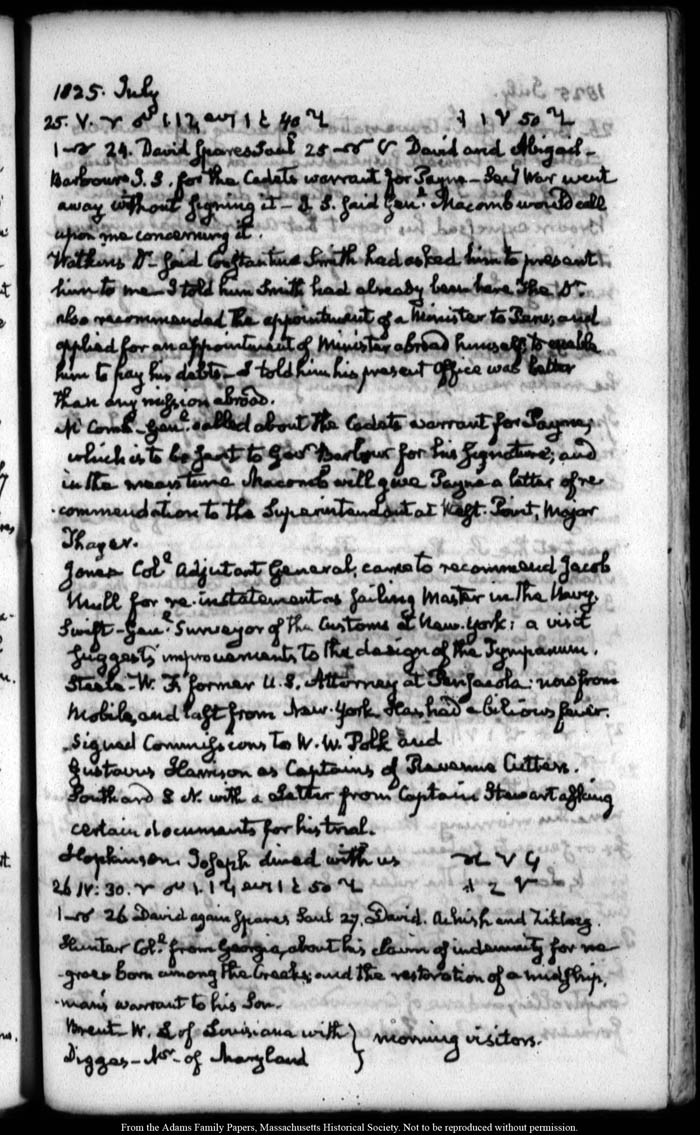 1825. July
25. V.
1 24. David spares Saul 25 David and Abigail—
Barbour J. S. for the Cadets warrant for Payne— Secy War went
away without signing it— J. S. said Genl. Macomb would call
upon me concerning it.
Watkins Dr— said Constantine Smith had asked him to present
him to me— I told him Smith had already been here. The Dr.
also recommended the appointment of a Minister to and
applied for an appointment of Minister abroad himself, to enable
him to pay his debts— I told him his present Office was better
than any mission abroad.
McComb— Genl. called about the Cadets warrant for Payne,
which is to be sent to Govr Barbour for his signature; and
in the mean time Macomb will give Payne a letter of re-
-commendation to the Superintendent at West-Point, Major
Thayer.
Jones Coll Adjutant General, came to recommend Jacob
Mull for re-instatement as sailing Master in the Navy.
Swift— Genl Surveyor of the Customs at New-York: a visit
suggests improvements to the design of the Tympanum.
Steele— W. F. former U.S. Attorney at Pensacola: now from
Mobile, and last from New-York. Has had a bilious fever.
Signed Commissions to W. W. Polk and
Gustavus Harrison as Captains of Revenue Cutters.
Southard S N. with a Letter from Captain Stewart asking
certain documents for his trial.
Hopkinson. Joseph dined with us
26 IV: 30.
1 26 David again spares Saul 27. David. Achish and Ziklag.
Hunter Coll. from Georgia, about his claim of indemnity for ne-
-groes born among the Creeks; and the restoration of a midship-
-man's warrant to his Son.
Brent— W. L of Louisiana with } morning visitors.
Digges— Mr— of Maryland
From the Adams Family Papers, Massachusetts Historical Society. Not to be reproduced without permission.